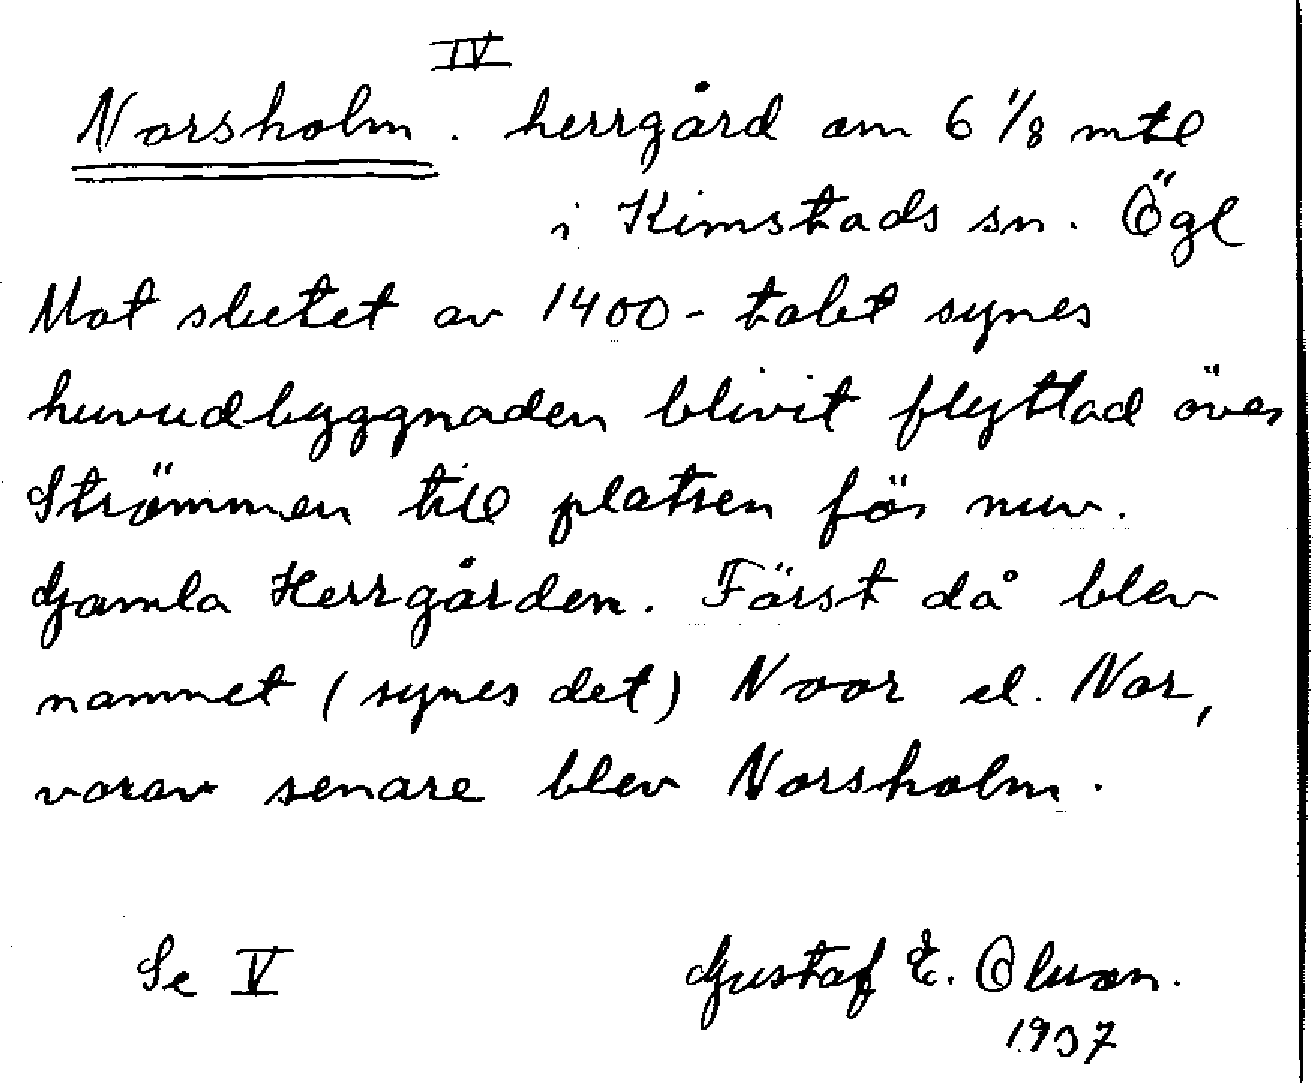 IV
Norsholm. herrgård om 6 1/8 mtl
i Kimstads sn. Ögl
Mot slutet av 1400-talet synes
huvudbyggnaden blivit flyttad över
Strömmen till platsen för nuv.
Gamla Herrgården. Först då blev
namnet (synes det) Noor el. Nor,
varav senare blev Norsholm.
Se V
Gustaf E.
1937